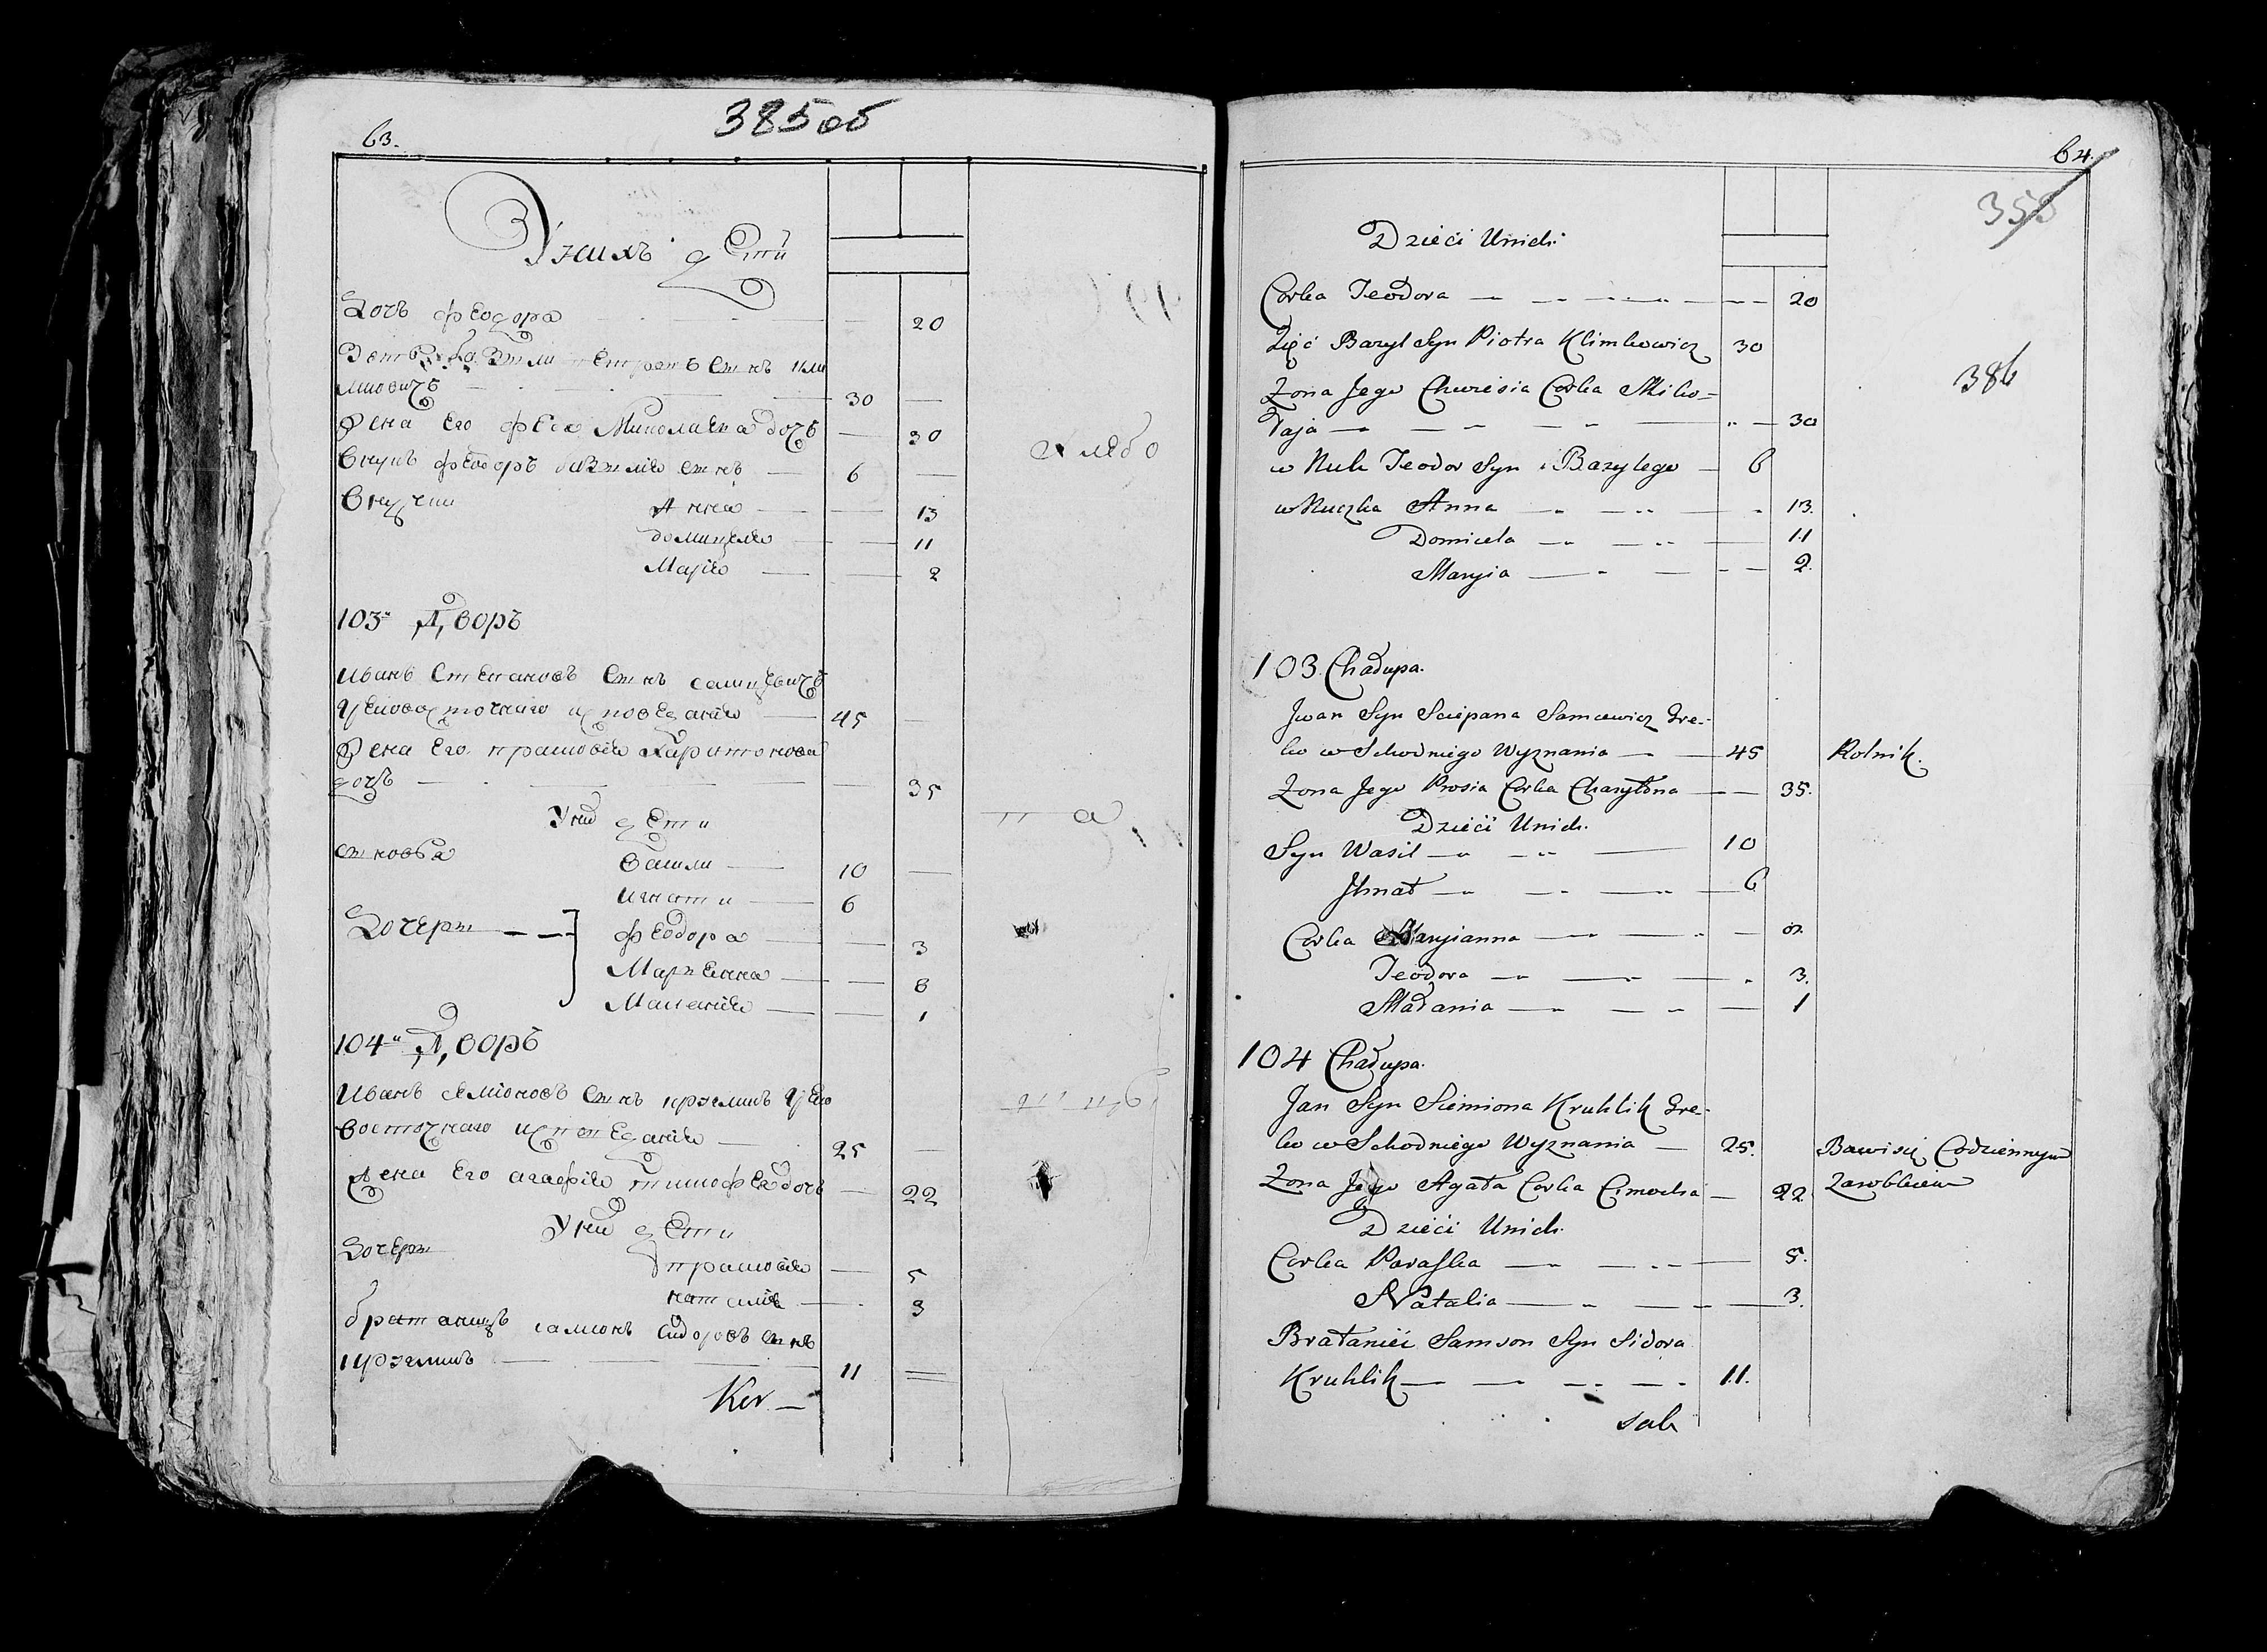 385об
63.
У нихъ дети
Дочь феодора 20
Зять Базыли Петровъ Сынъ Кли
мковичъ 30
Жена Его феся Миколаева дочь 30
Внукъ феодоръ базылiя Сынъ 6
Внучки Анна 13
домицеля 11
Марiя 2
103й Дворъ
Иванъ Степановъ Сынъ самцевичъ
Грековосточнаго исповеданiя 45
Жена Его прасковiя Харитонова
дочь 35
У них дети
Сыновья Васили 10
Игнати 6
Дочеры феодора 3
Марыянна 8
Маланiя 1
104й Дворъ
Иванъ Семiоновъ Сынъ круглик Греко
восточнаго исповеданiя 25
Жена Его агафiя тимофея дочь 22
У них дети
Дочеры прасковiя 5
наталiя 3
братаницъ самсонъ Сидоровъ Сынъ
кругликъ 11
64.
358
386
Dzieći Unich:
Corka Teodora 20
Zięć Bazyl Syn Piotra Klimkowicz 30
Zona Jego Chwiesia Corka Miko=
łaja 30
w Nuk Teodor Syn Bazylego 6
w Nuczka Anna 13.
Domicela 11
Maryia 2.
103 Chałupa.
Jwan Syn Sciepana Samcewicz Gre-
ko w Schodniego Wyznania 45 Rolnik.
Zona Jego Prosia Corka Charytona 35.
Dzieći Unich.
Syn Wasil 10
Jhnat 6
Corka Maryianna 8.
Teodora 3.
Małania 1
104 Chałupa.
Jan Syn Siemiona Kruhlik Gre-
ko w Schodniego Wyznania 25. Bawi się Codziennym
Zona Jego Agata Corka Cimocha 22 Zarobkiem
Dzieći Unich.
Corka Paraska 5.
Natalia 3.
Brataniei Samson Syn Sidora
Kruhlik 11.